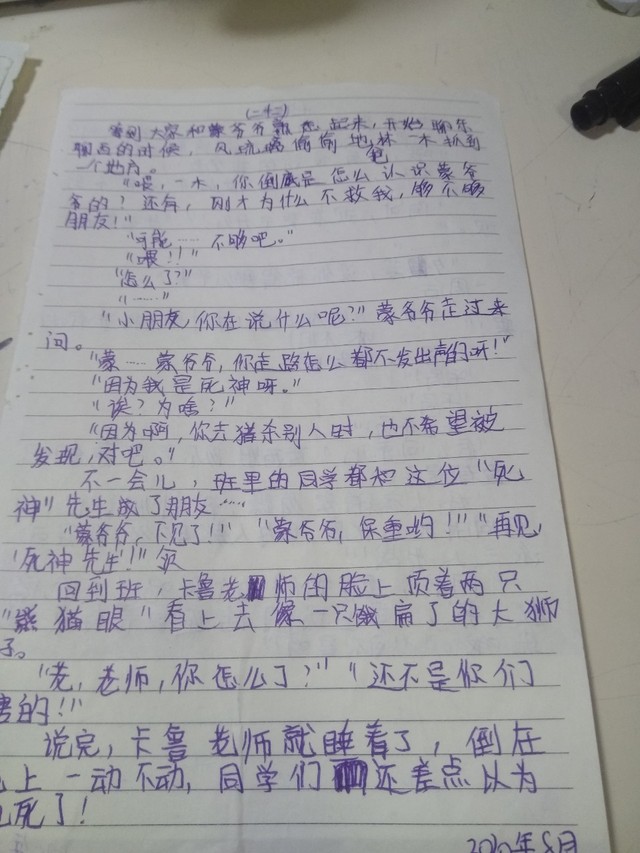 (二十二)
等到大家和蒙爷爷熟悉起来,开始聊东
聊西的时候,风 偷偷地 林一木 到
一个地方。
"喂,一木,你倒底是怎么认识蒙爷
爷的?还有,刚才为什么不救我,够不够
朋友!"
"可能……不够吧。"
"喂!!"
"怎么了?"
"……"
"小朋友,你在说什么呢?"蒙爷爷走过来
问。
"蒙……蒙爷爷,你走路怎么都不发出声的呀!"
"因为我是死神呀。"
"诶?为啥?"
"因为啊,你去猎杀别人时,也不希望被
发现,对吧。"
不一会儿,班里的同学都和这位"死
神"先生成了朋友……
"蒙爷爷,下见了!!" "蒙爷爷,保重哟!!" "再见,
死神先生!"
回到班,卡鲁老师的脸上顶着两只
"熊猫眼"看上去像一只饿扁了的大狮
子。
"老,老师,你怎么了?" "还不是你们
害的!!"
说完,卡鲁老师就睡着了,倒在
上一动不动,同学们还差点以为
死了!
年8月